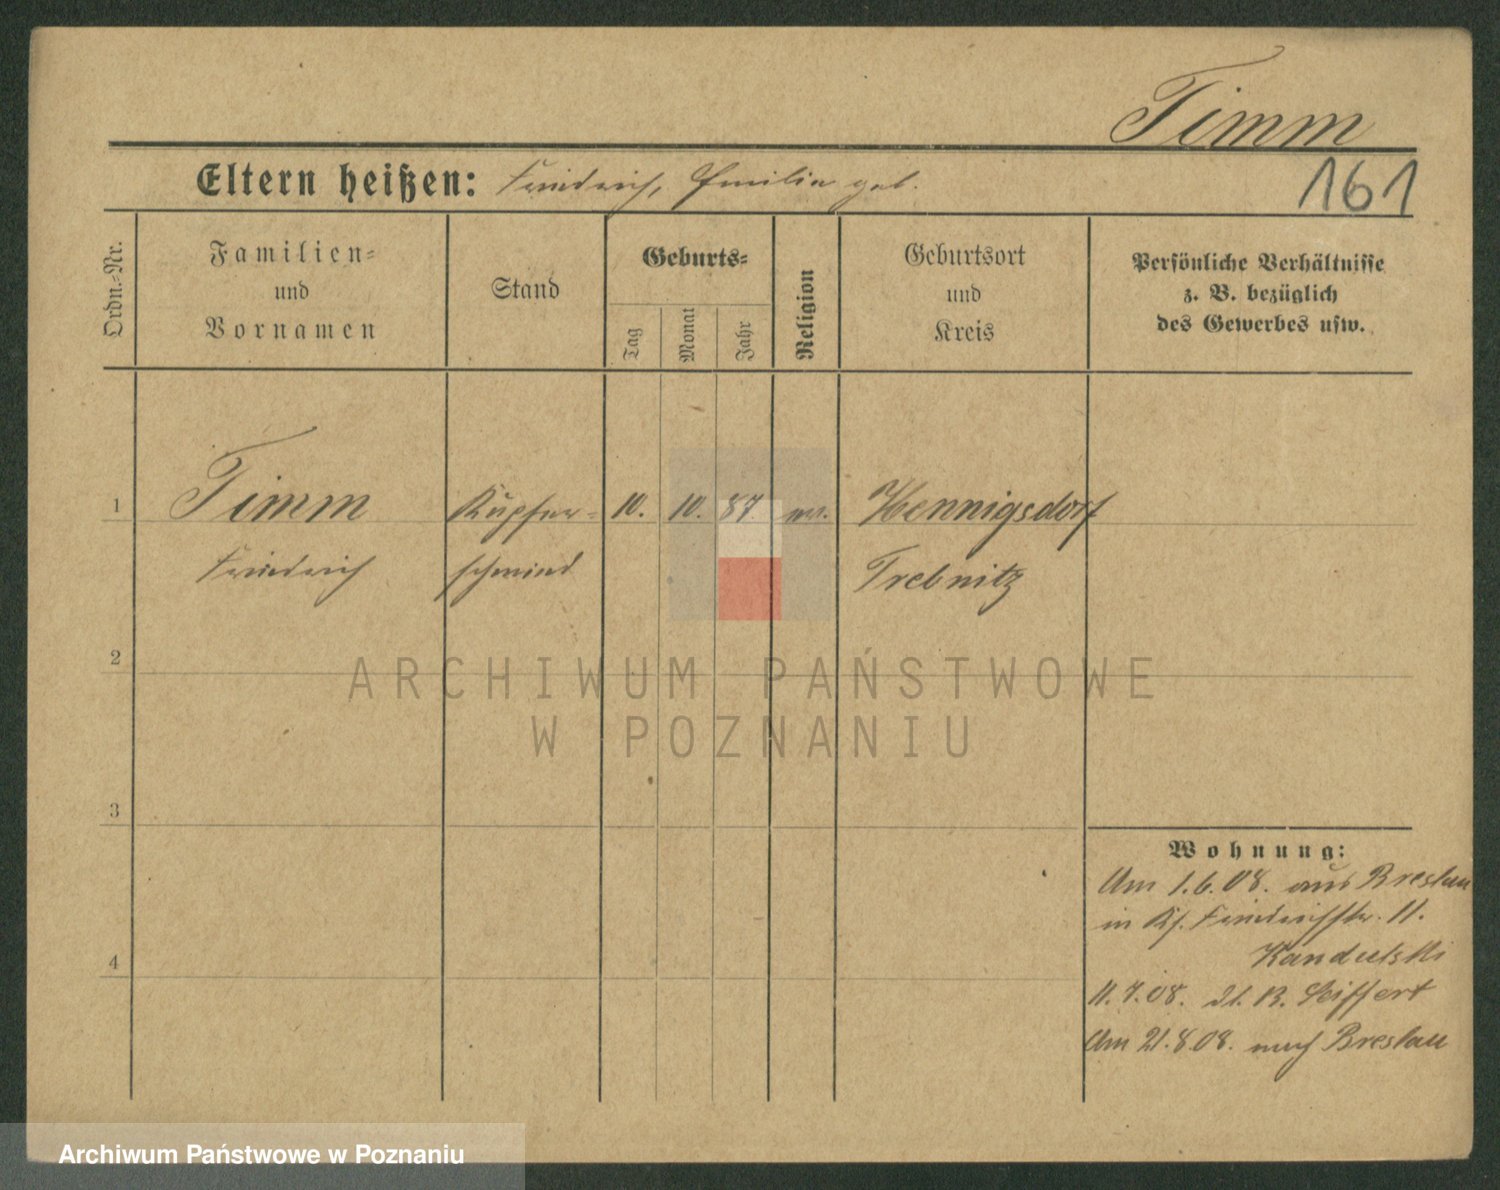 Timm
161
Eltern heißen: Friedrich, Emilie geb.
Ordn.-Nr.
Familien-
und
Vornamen
Stand
Geburts-
Tag
Monat
Jahr
Religion
Geburtsort
und
Kreis
Persönliche Verhältnisse
z. B. bezüglich
des Gewerbes usw.
1
Timm Kupfer- 10. 10. 87 ev. Hennigsdorf
Friedrich schmied Trebnitz
2
3
4
Wohnung:
Am 1.6.08. aus Breslau
in Friedrichstr. 11.
Kandulski
11.7.08. B. Seiffert
Am 21.8.08. nach Breslau
ARCHIWUM PAŃSTWOWE
W POZNANIU
Archiwum Państwowe w Poznaniu